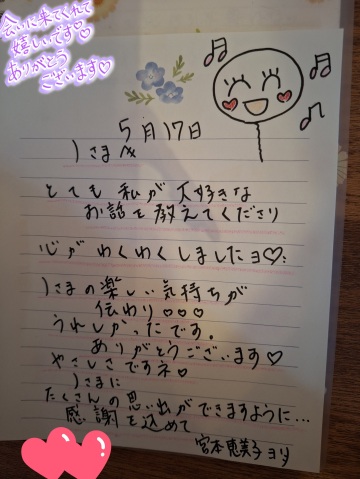 会いに来てくれて
嬉しいです♡
ありがとう
ございます♡
5月17日
さまへ
とても私が大好きな
お話を教えてくださり
心がわくわくしましたヨ♡
さまの楽しい気持ちが
伝わり♡♡♡
うれしかったです。
ありがとうございます♡
やさしさですネ
さまに
たくさんの思い出ができますように…
感謝を込めて
宮本恵美子ヨリ